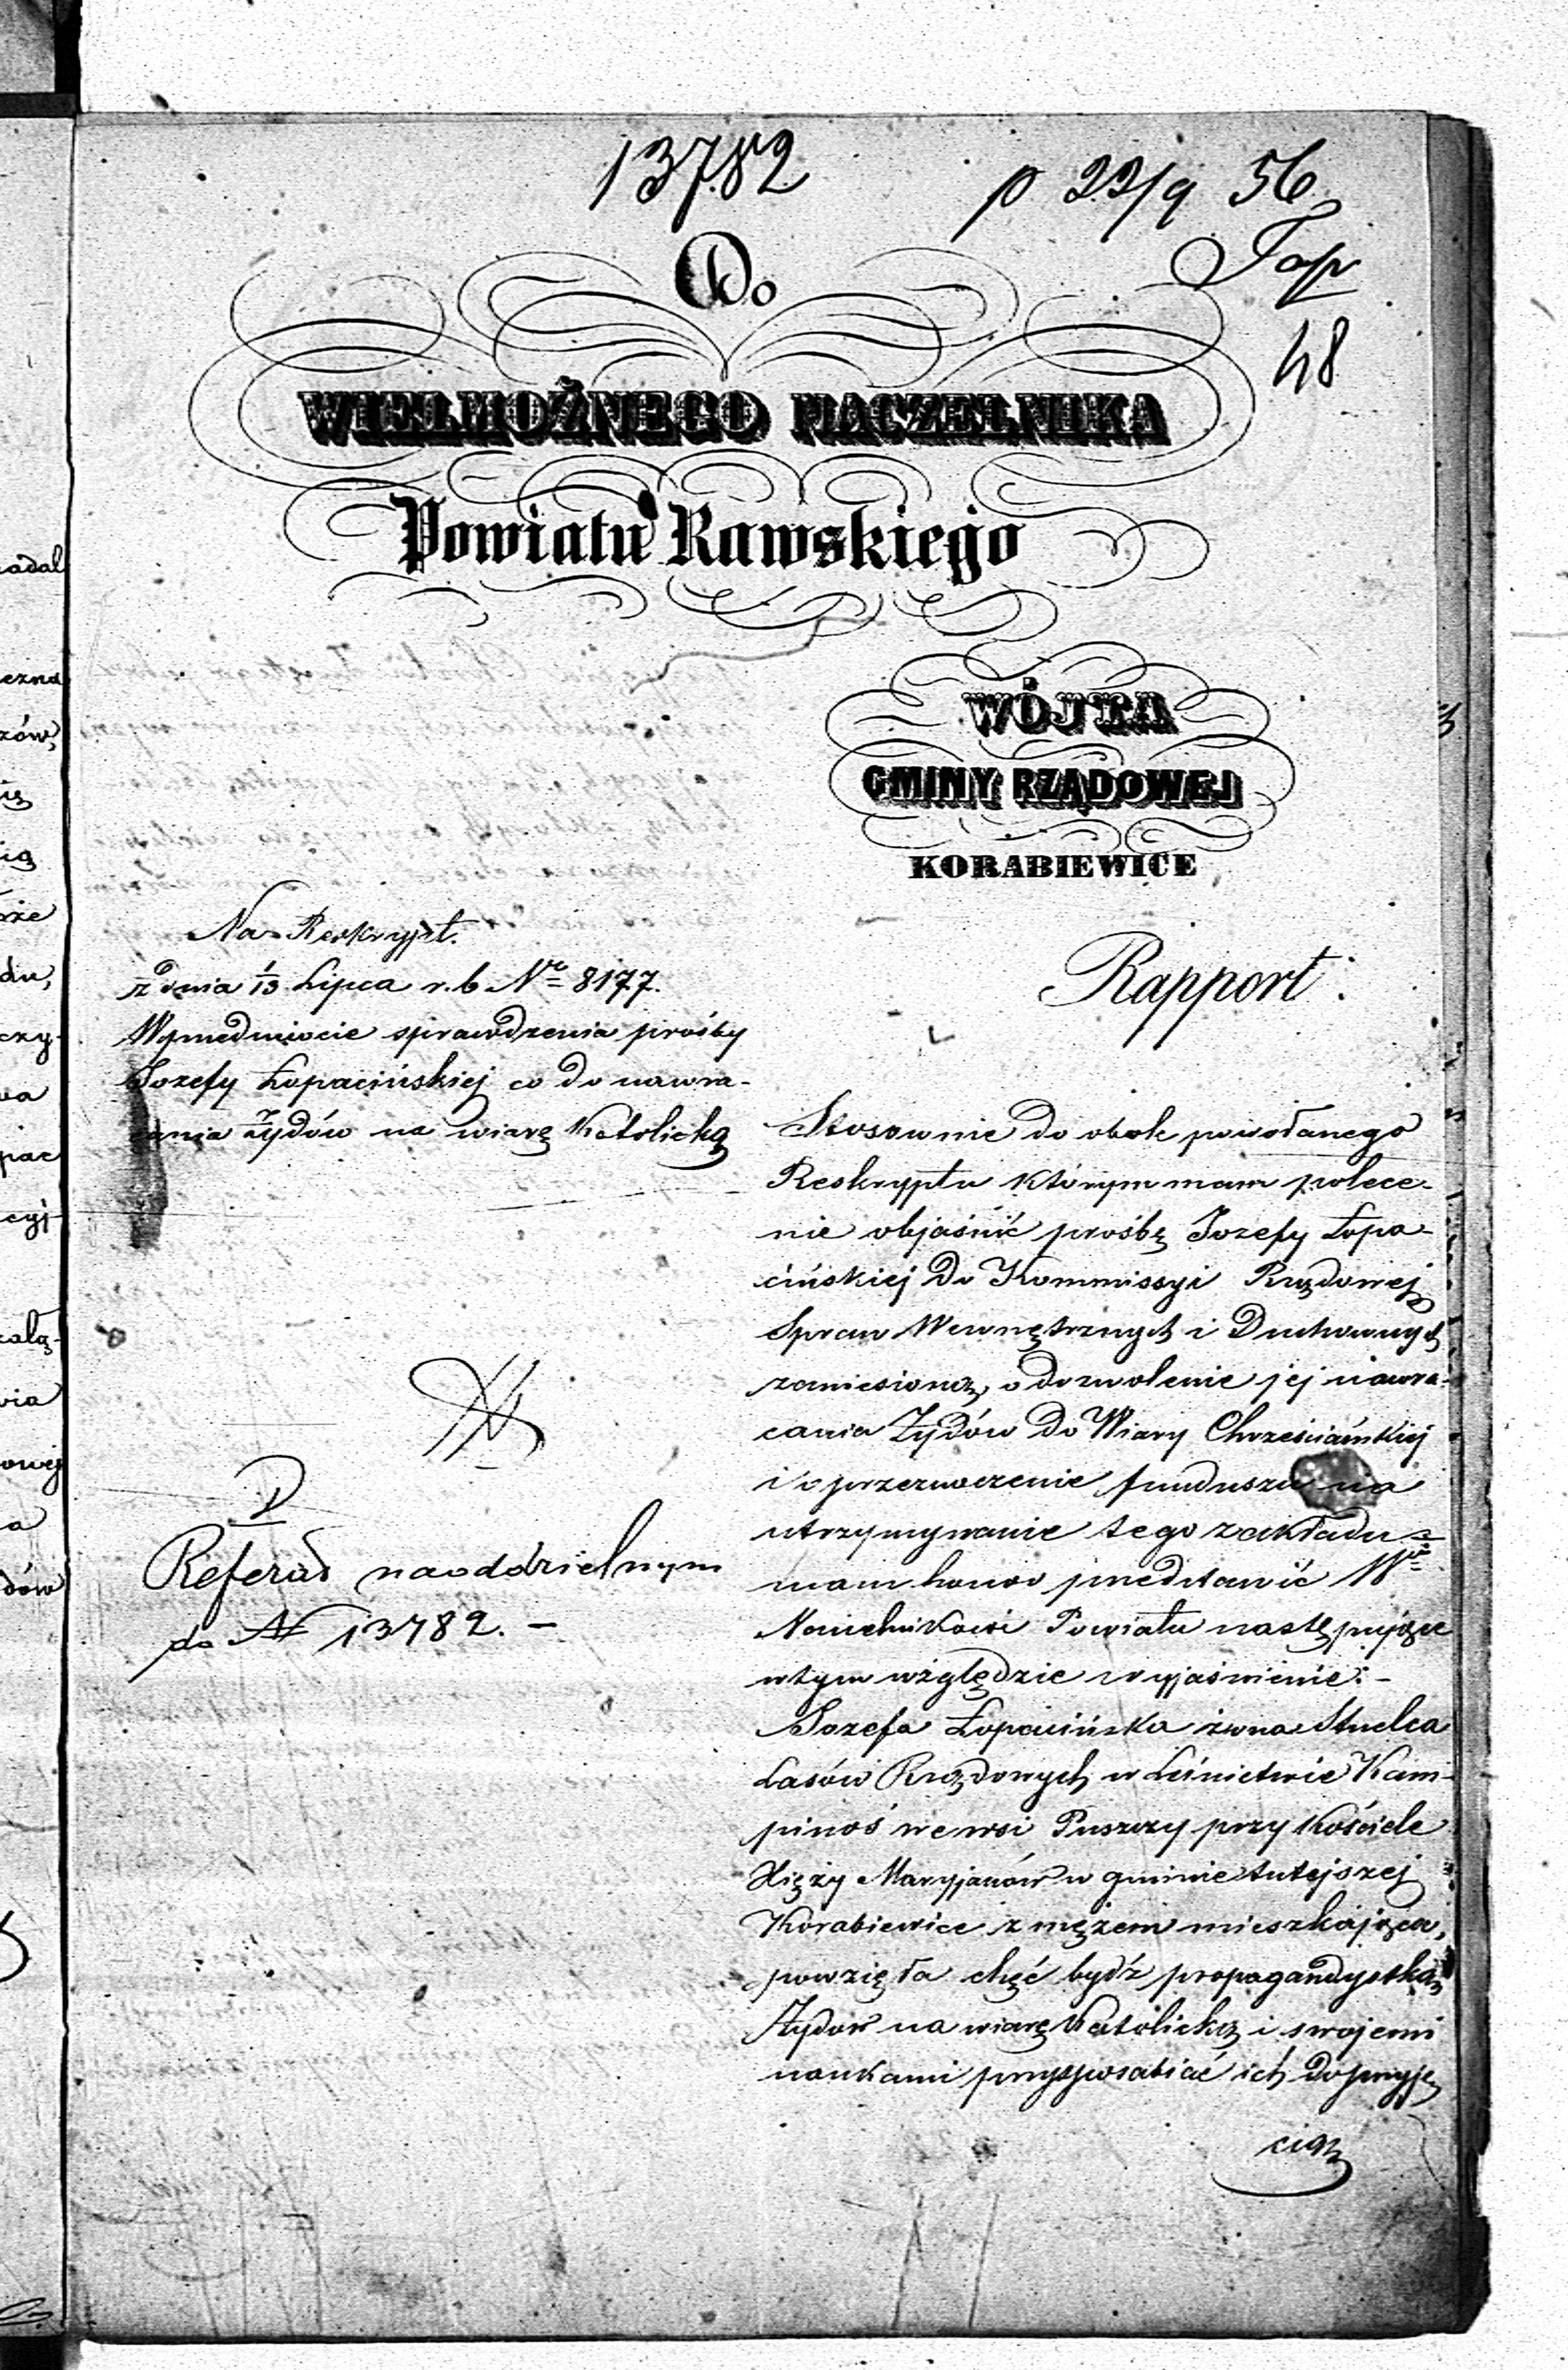 13782
p 22/9 56
48
Do
WIELMOŻNEGO NACZELNIKA
Powiatu Rawskiego
WÓJTA
GMINY RZĄDOWEJ
KORABIEWICE
Na Reskrypt.
z dnia 1/13 Lipca r. b. No 8177.
W przedmiocie sprawdzenia prośby
Jozefy Łopacińskiej co do nawra-
cania Żydów na wiarę Katolicką
Rapport:
Stosownie do obok powołanego
Reskryptu którym mam polece-
nie objaśnić prośbę Jozefy Łopa-
cińskiej do Kommissyi Rządowej
Spraw Wewnętrznych i Duchownych
zaniesioną, o dozwolenie jej nawra-
cania Żydów do Wiary Chrześciańskiej
i o przeznaczenie funduszu na
utrzymywanie tego zakładu =
mam honor przedstawić Wmu
Naczelnikowi Powiatu następujące
w tym względzie wyjaśnienie: -
Jozefa Łopacińska żona Strzelca
Lasów Rządowych w Leśnictwie Kam-
pinos we wsi Puszczy przy Kościele
Xięży Maryjanów w gminie tutejszej
Korabiewice z mężem mieszkająca,
powzięła chęć bydź propagandystką
Żydów na wiarę Katolicką i swojemi
naukami przysposabiać ich do przyję
cia
D
Referat na oddzielnym
do No 13782. -